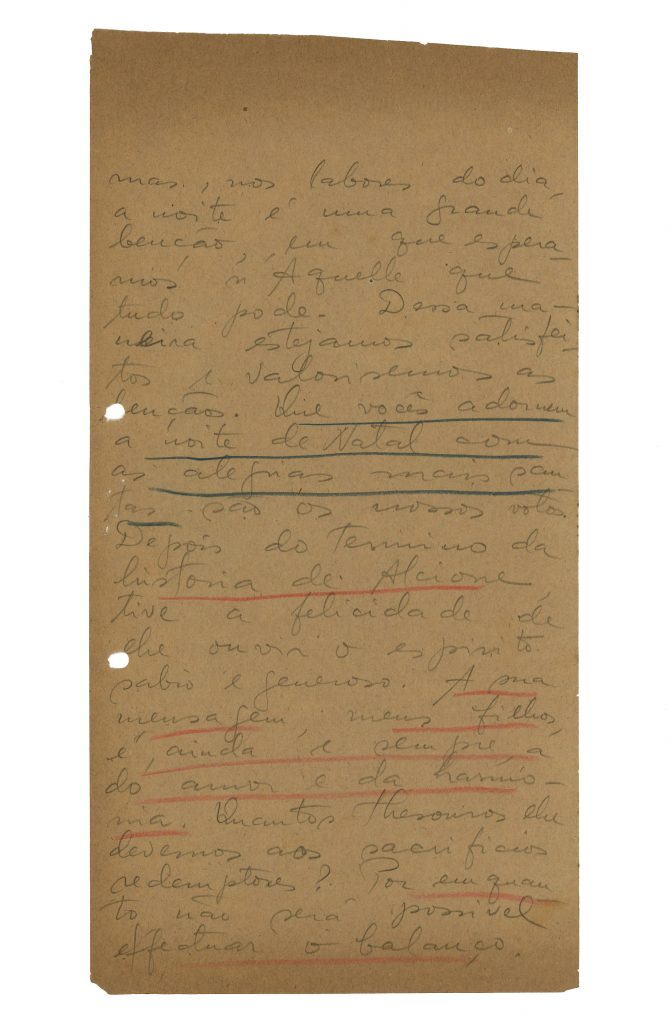 mas, nos labores do dia,
a noite é uma grande
bencção, em que espera-
mos n'Aquelle que
tudo pode. Dessa ma-
neira estejamos satisfei-
tos e valorisemos as
bencãos. Que vocês adornem
a noite de Natal com
as alegrias mais san
tas são os nossos votos.
Depois do termino da
historia de Alcione,
tive a felicidade de
lhe ouvir o espirito
sabio e generoso. A sua
mensagem, meus filhos,
é, ainda e sempre, a
do amor e da harmo-
nia. Quantos thesouros lhe
devemos aos sacrificios
redemptores? Por emquan
to não será possivel
effectuar o balanço.